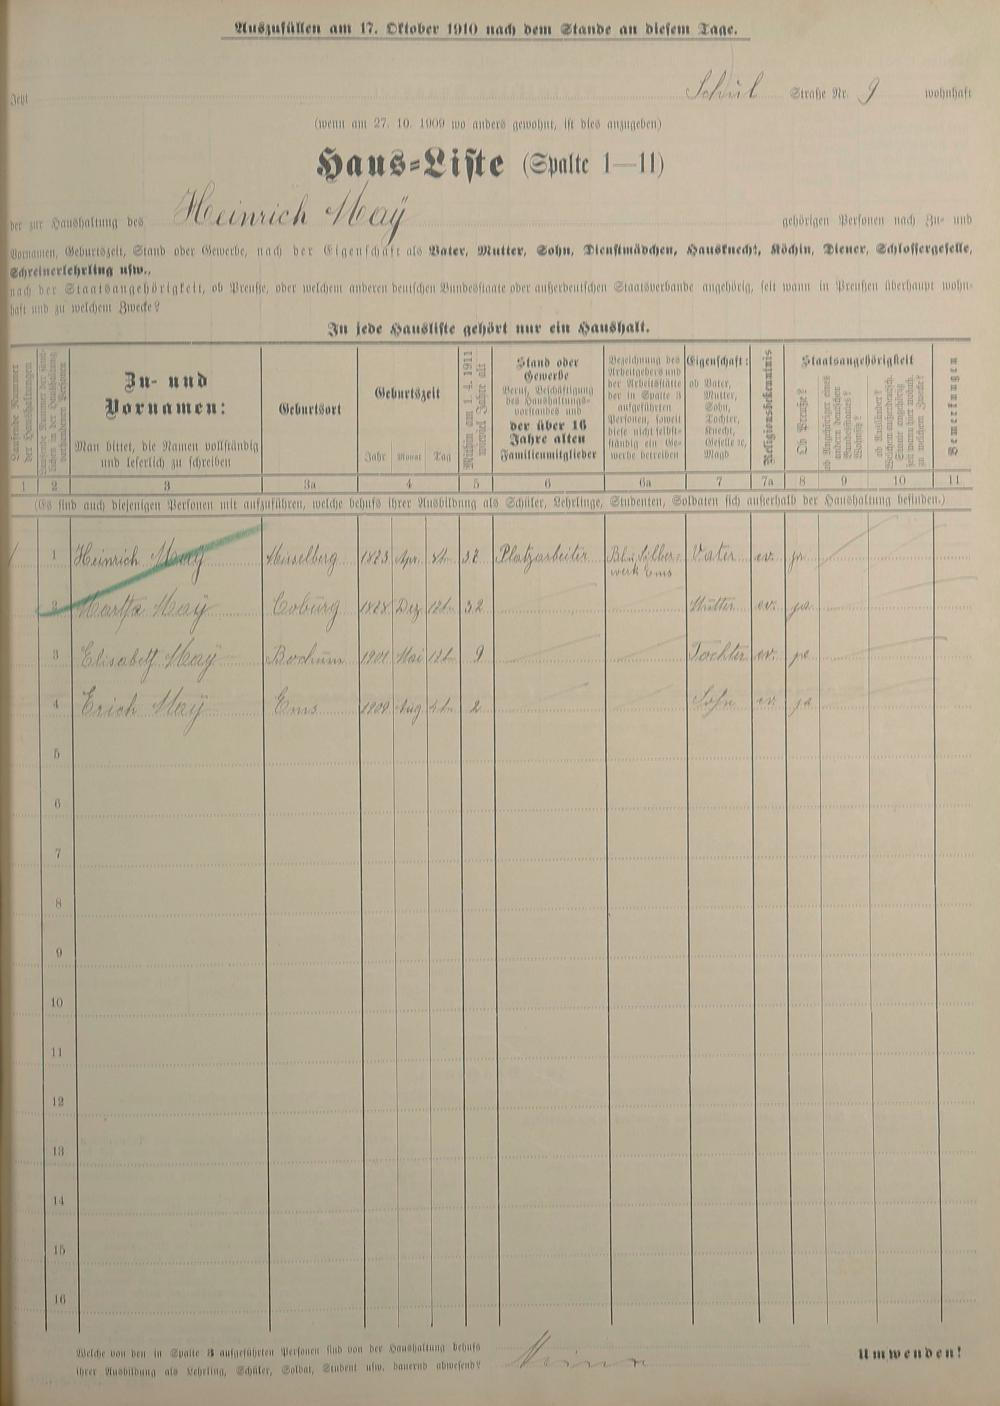 Auszufüllen am 17. Oktober 1910 nach dem Stande an diesem Tage.
Jetzt Schul Straße Nr. 9 wohnhaft
(wenn am 27. 10. 1909 wo anders gewohnt, ist dies anzugeben)
Haus-Liste (Spalte 1—11)
der zur Haushaltung des Heinrich Maÿ gehörigen Personen nach Zu- und
Vornamen, Geburtszeit, Stand oder Gewerbe, nach der Eigenschaft als Vater, Mutter, Sohn, Dienstmädchen, Hausknecht, Köchin, Diener, Schlossergeselle,
Schreinerlehrling usw.,
nach der Staatsangehörigkeit, ob Preuße, oder welchem anderen deutschen Bundesstaate oder außerdeutschen Staatsverbande angehörig, seit wann in Preußen überhaupt wohn-
haft und zu welchem Zwecke?
In jede Hausliste gehört nur ein Haushalt.
Laufende Nummer
der Haushaltungen
Zu- und
Vornamen:
Man bittet, die Namen vollständig
und leserlich zu schreiben
Geburtsort
Geburtszeit
Jahr Monat Tag
Mithin am 1. 4. 1911
wieviel Jahre alt
Stand oder
Gewerbe
Beruf, Beschäftigung
des Haushaltungs-
vorstandes und
der über 16
Jahre alten
Familienmitglieder
Bezeichnung des
Arbeitgebers und
der Arbeitsstätte
der in Spalte 3
aufgeführten
Personen, soweit
diese nicht selbst-
ständig ein Ge-
werbe betreiben
Eigenschaft:
ob Vater,
Mutter,
Sohn,
Tochter,
Knecht,
Geselle rc,
Magd
Religionsbekenntnis
Staatsangehörigkeit
Ob Preuße?
ob Angehöriger eines
andern deutschen
Bundesstaates?
Welches?
ob Ausländer?
Bemerkungen
1 2 3 3a 4 5 6 6a 7 7a 8 9 10 11
(Es sind auch diejenigen Personen mit aufzuführen, welche behufs ihrer Ausbildung als Schüler, Lehrlinge, Studenten, Soldaten sich außerhalb der Haushaltung befinden.)
1 Heinrich Maÿ Misselberg 1873 Apr. 37 Platzarbeiter Silber- Vater ev. ja
werk Ems
2 Martha Maÿ Coburg 1878 Dez 12t. 32 Mutter ev. ja
3 Elisabeth Maÿ Bochum 1901 Mai 12t. 9 Tochter ev. ja
4 Erich Maÿ Ems 1909 Aug 2 Sohn ev. ja
5
6
7
8
9
10
11
12
13
14
15
16
Welche von den in Spalte 3 aufgeführten Personen sind von der Haushaltung behufs
ihrer Ausbildung als Lehrling, Schüler, Soldat, Student usw. dauernd abwesend?
Umwenden!